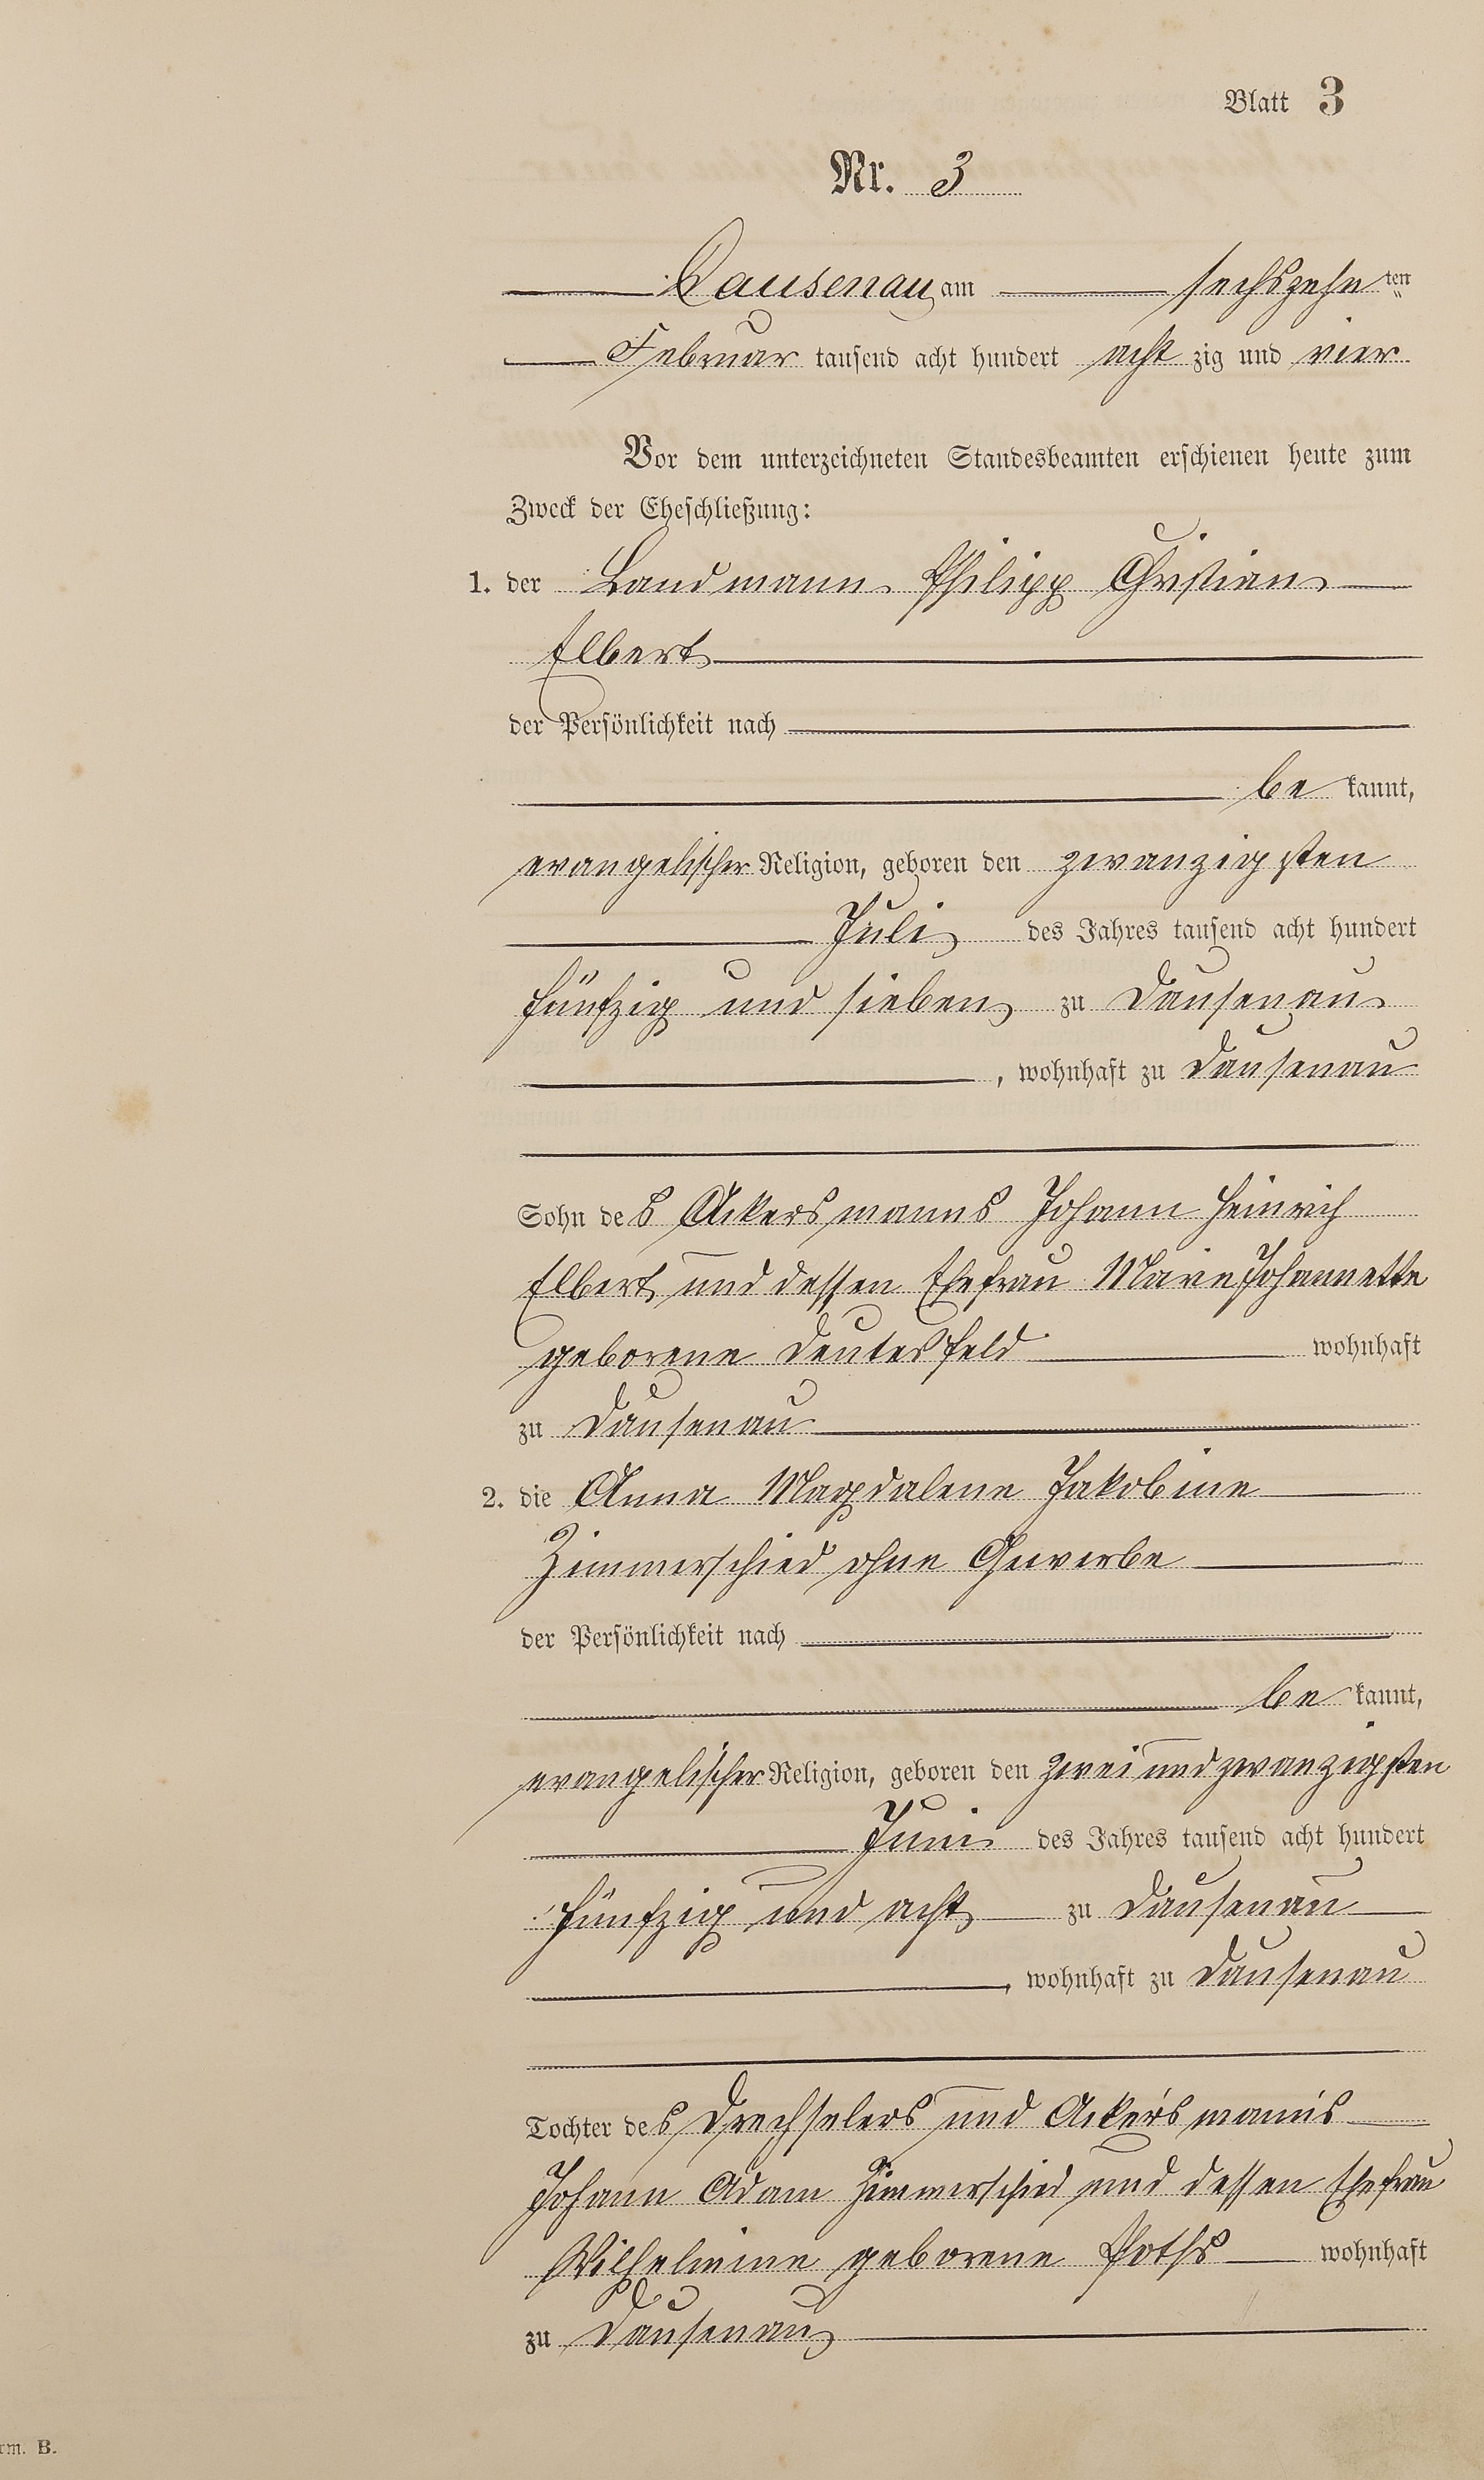 Blatt 3
Nr. 3
Dausenau am sechszehn ten
Februar tausend acht hundert acht zig und vier
Vor dem unterzeichneten Standesbeamten erschienen heute zum
Zweck der Eheschließung:
1. der Landmann Philipp Christian
Elbert
der Persönlichkeit nach
be kannt,
evangelischer Religion, geboren den zwanzigsten
Juli des Jahres tausend acht hundert
fünfzig und sieben zu Dausenau
, wohnhaft zu Dausenau
Sohn des Ackersmanns Johann Heinrich
Elbert und dessen Ehefrau Marie Johannette
geborene Deutesfeld wohnhaft
zu Dausenau
2. die Anna Magdalene Jakobine
Zimmerschied ohne Gewerbe
der Persönlichkeit nach
be kannt,
evangelischer Religion, geboren den zwei und zwanzigsten
Juni des Jahres tausend acht hundert
fünfzig und acht zu Dausenau
, wohnhaft zu Dausenau
Tochter des Drechselers und Ackersmanns
Johann Adam Zimmerschied und dessen Ehefrau
Wilhelmine geborene Poths wohnhaft
zu Dausenau
rm. B.